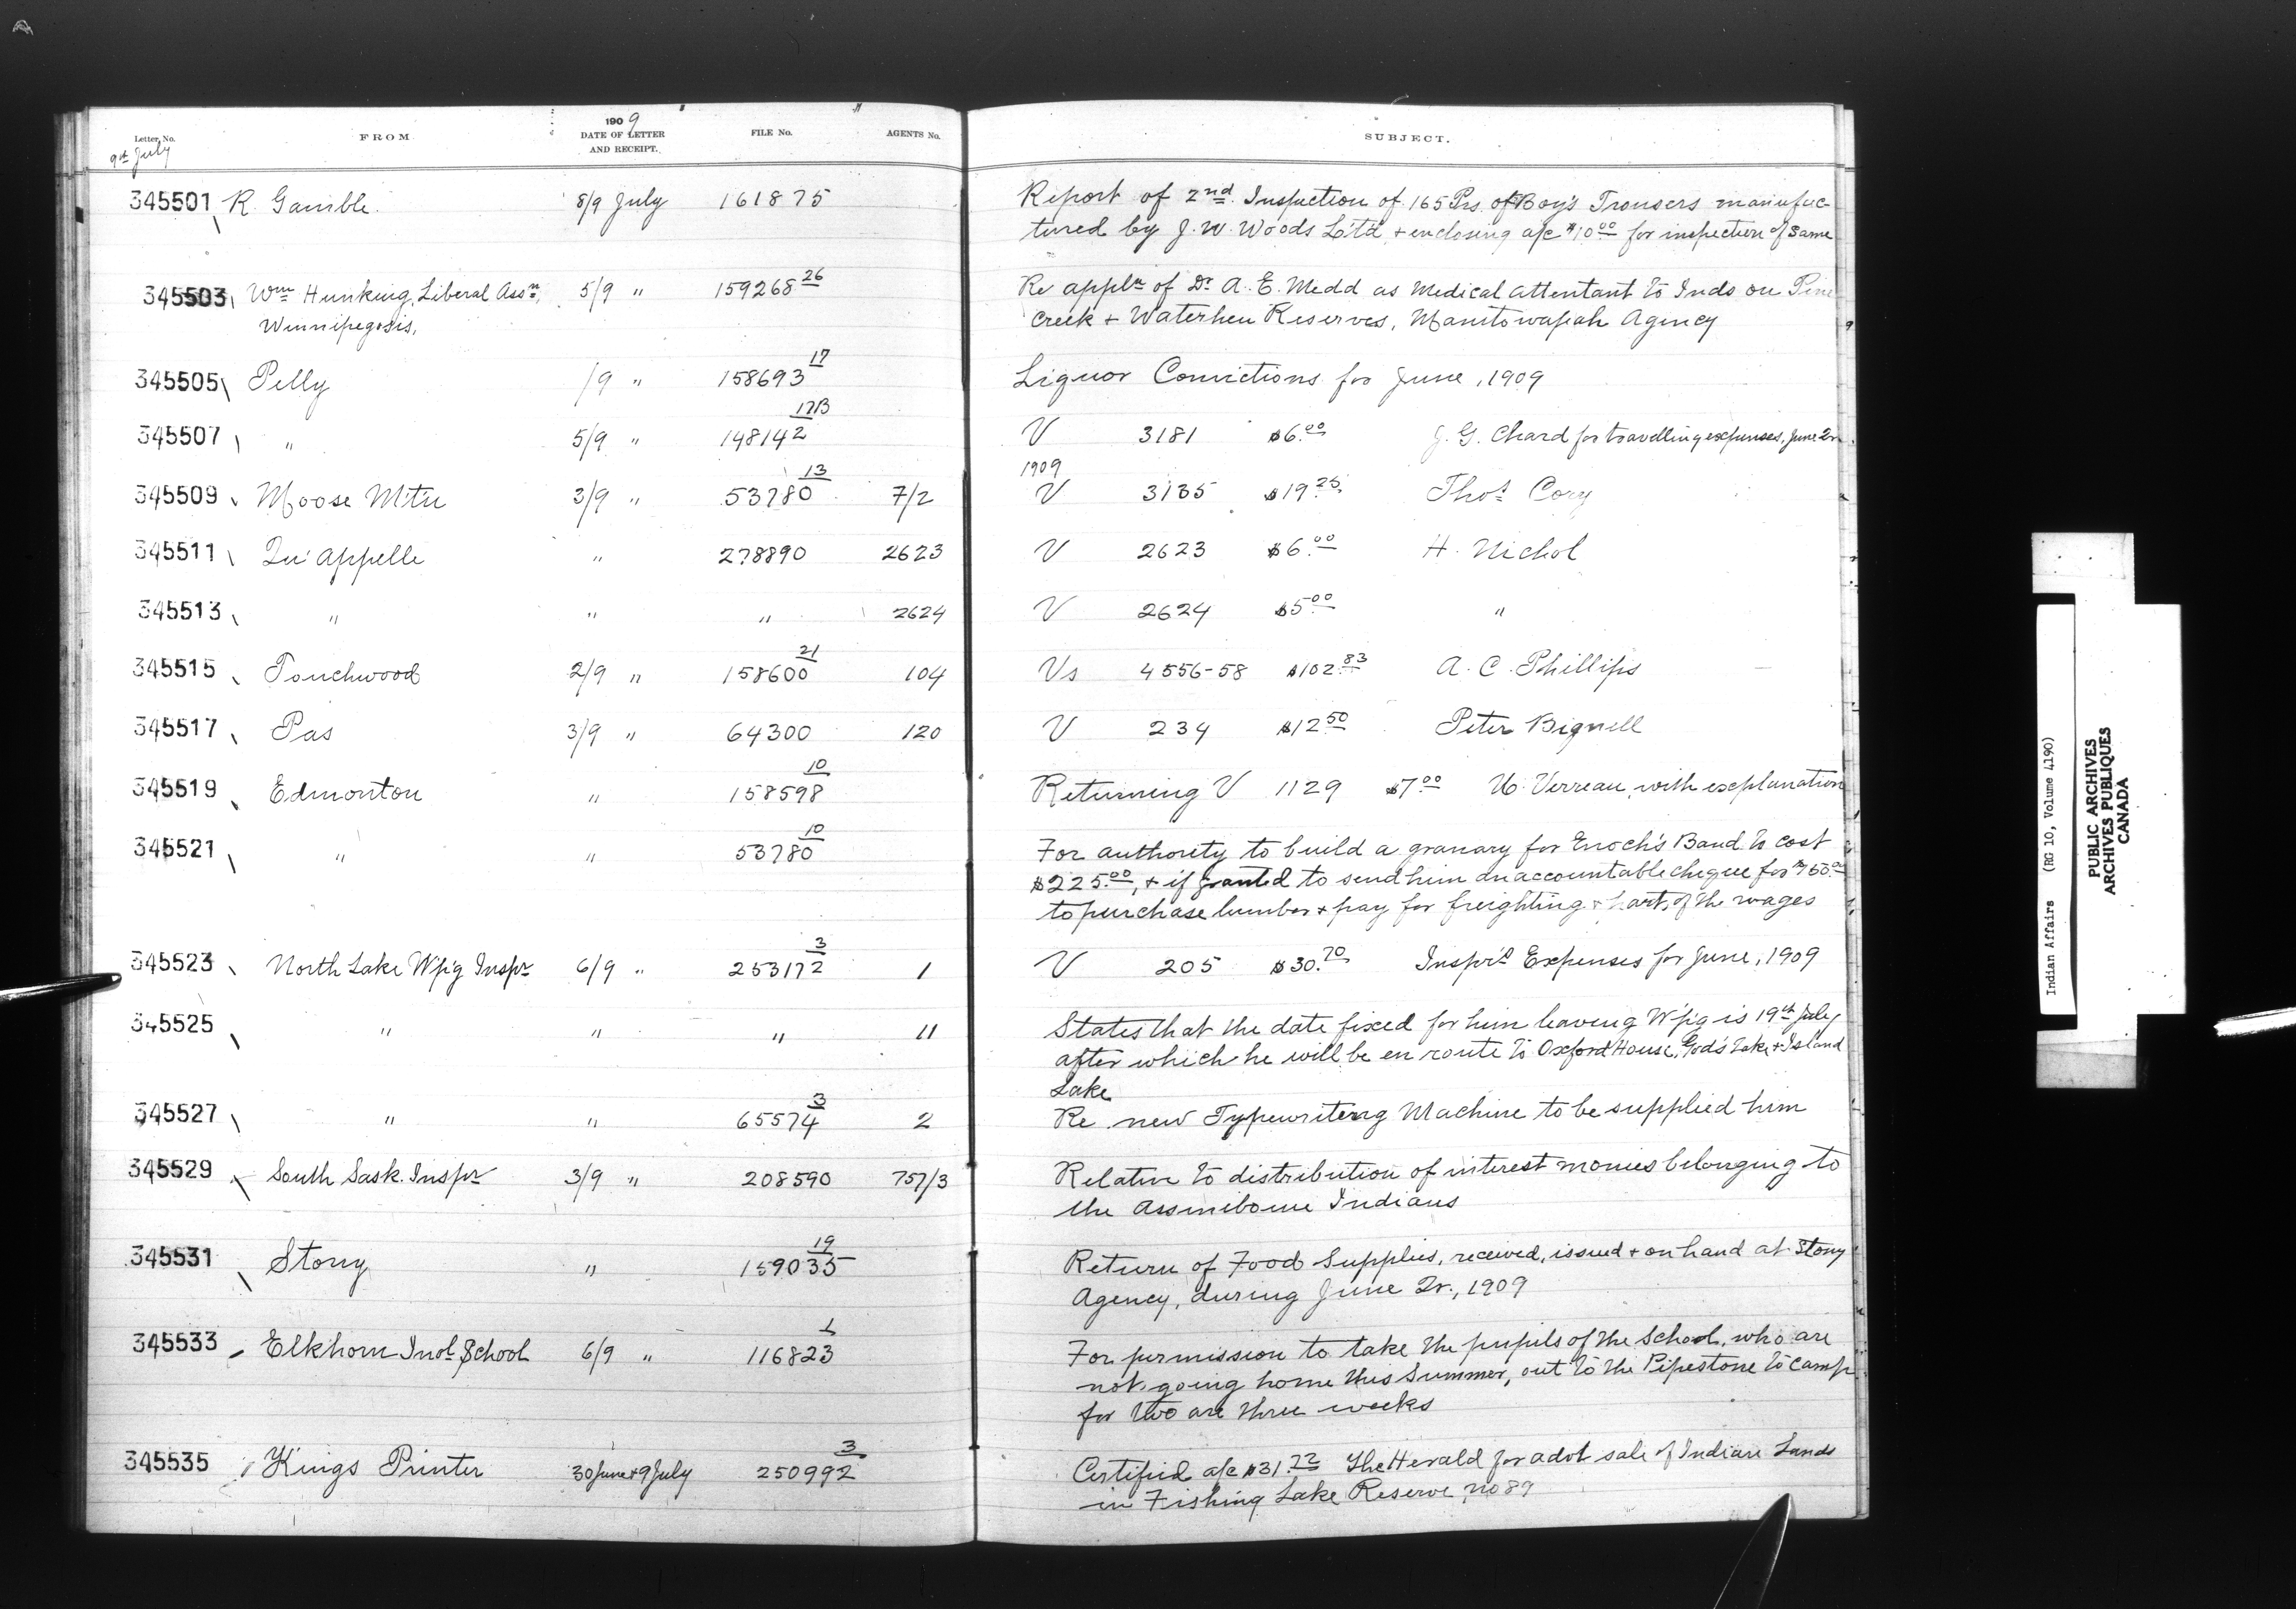 1909
Letter No. FROM DATE OF LETTER AND RECEIPT. FILE No. AGENTS No. SUBJECT.
9th July
345501 R. Gamble. 8/9 July 161875 Report of 2nd Inspection of 165 Prs of Boy's Trousers manufac-
tured by J. W. Woods Lt'd, + enclosing a/c $10.00 for inspection of same
345503 Wm Hunking, Liberal Assn, 5/9 " 159268 26 Re appln of Dr A. E. Medd as Medical Attentant to Inds on Pine
Winnipegosis, Creek + Waterhen Reserves, Manitowapah Agency
345505 Pelly /9 " 158693 17 Liquor Convictions for June, 1909
345507 " 5/9 " 148142 17B V 3181 $6.00 J. G. Chard for travelling expenses, June Qr.
1909
345509 Moose Mtn 3/9 " 53780 13 7/2 V 3135 $19.25 Thos Cory
345511 Qu'Appelle " 278890 2623 V 2623 $6.00 H. Nichol
345513 " " " 2624 V 2624 $5.00 "
345515 Touchwood 2/9 " 158600 21 104 Vs 4556-58 $102.83 A. C. Phillips
345517 Pas 3/9 " 64300 120 V 234 $12.50 Peter Bignell
345519 Edmonton " 158598 10 Returning V 1129 $7.00 U. Verreau, with explanation
345521 " " 53780 10 For authority to build a granary for Enoch's Band to cost
$225.00, + if granted to send him an accountable cheque for
to purchase lumber + pay for freighting + part of the wages
345523 North Lake W'p'g Inspr 6/9 " 253172 3 1 V 205 $30.70 Inspr's Expenses for June, 1909
345525 " " " 11 States that the date fixed for him leaving W'p'g is 19th July
after which he will be en route to Oxford House, God's Lake + Island
Lake
345527 " " 65574 3 2 Re new Typewriterng Machine to be supplied him
345529 South Sask. Inspr 3/9 " 208590 757/3 Relative to distribution of interest monies belonging to
the Assiniboine Indians
345531 Stony " 159035 19 Return of Food Supplies, received, issued + on hand at Stony
Agency, during June Qr., 1909
345533 Elkhorn Indl School 6/9 " 116823 1 For permission to take the pupils of the School, who are
not going home this Summer, out to the Pipestone to camp
for two are three weeks
345535 Kings Printer 30 June + 9 July 250992 3 Certified a/c $31.22 The Herald for advt sale of Indian Lands
in Fishing Lake Reserve, no 89
Indian Affairs (RG 10, Volume 4190)
PUBLIC ARCHIVES
ARCHIVES PUBLIQUES
CANADA